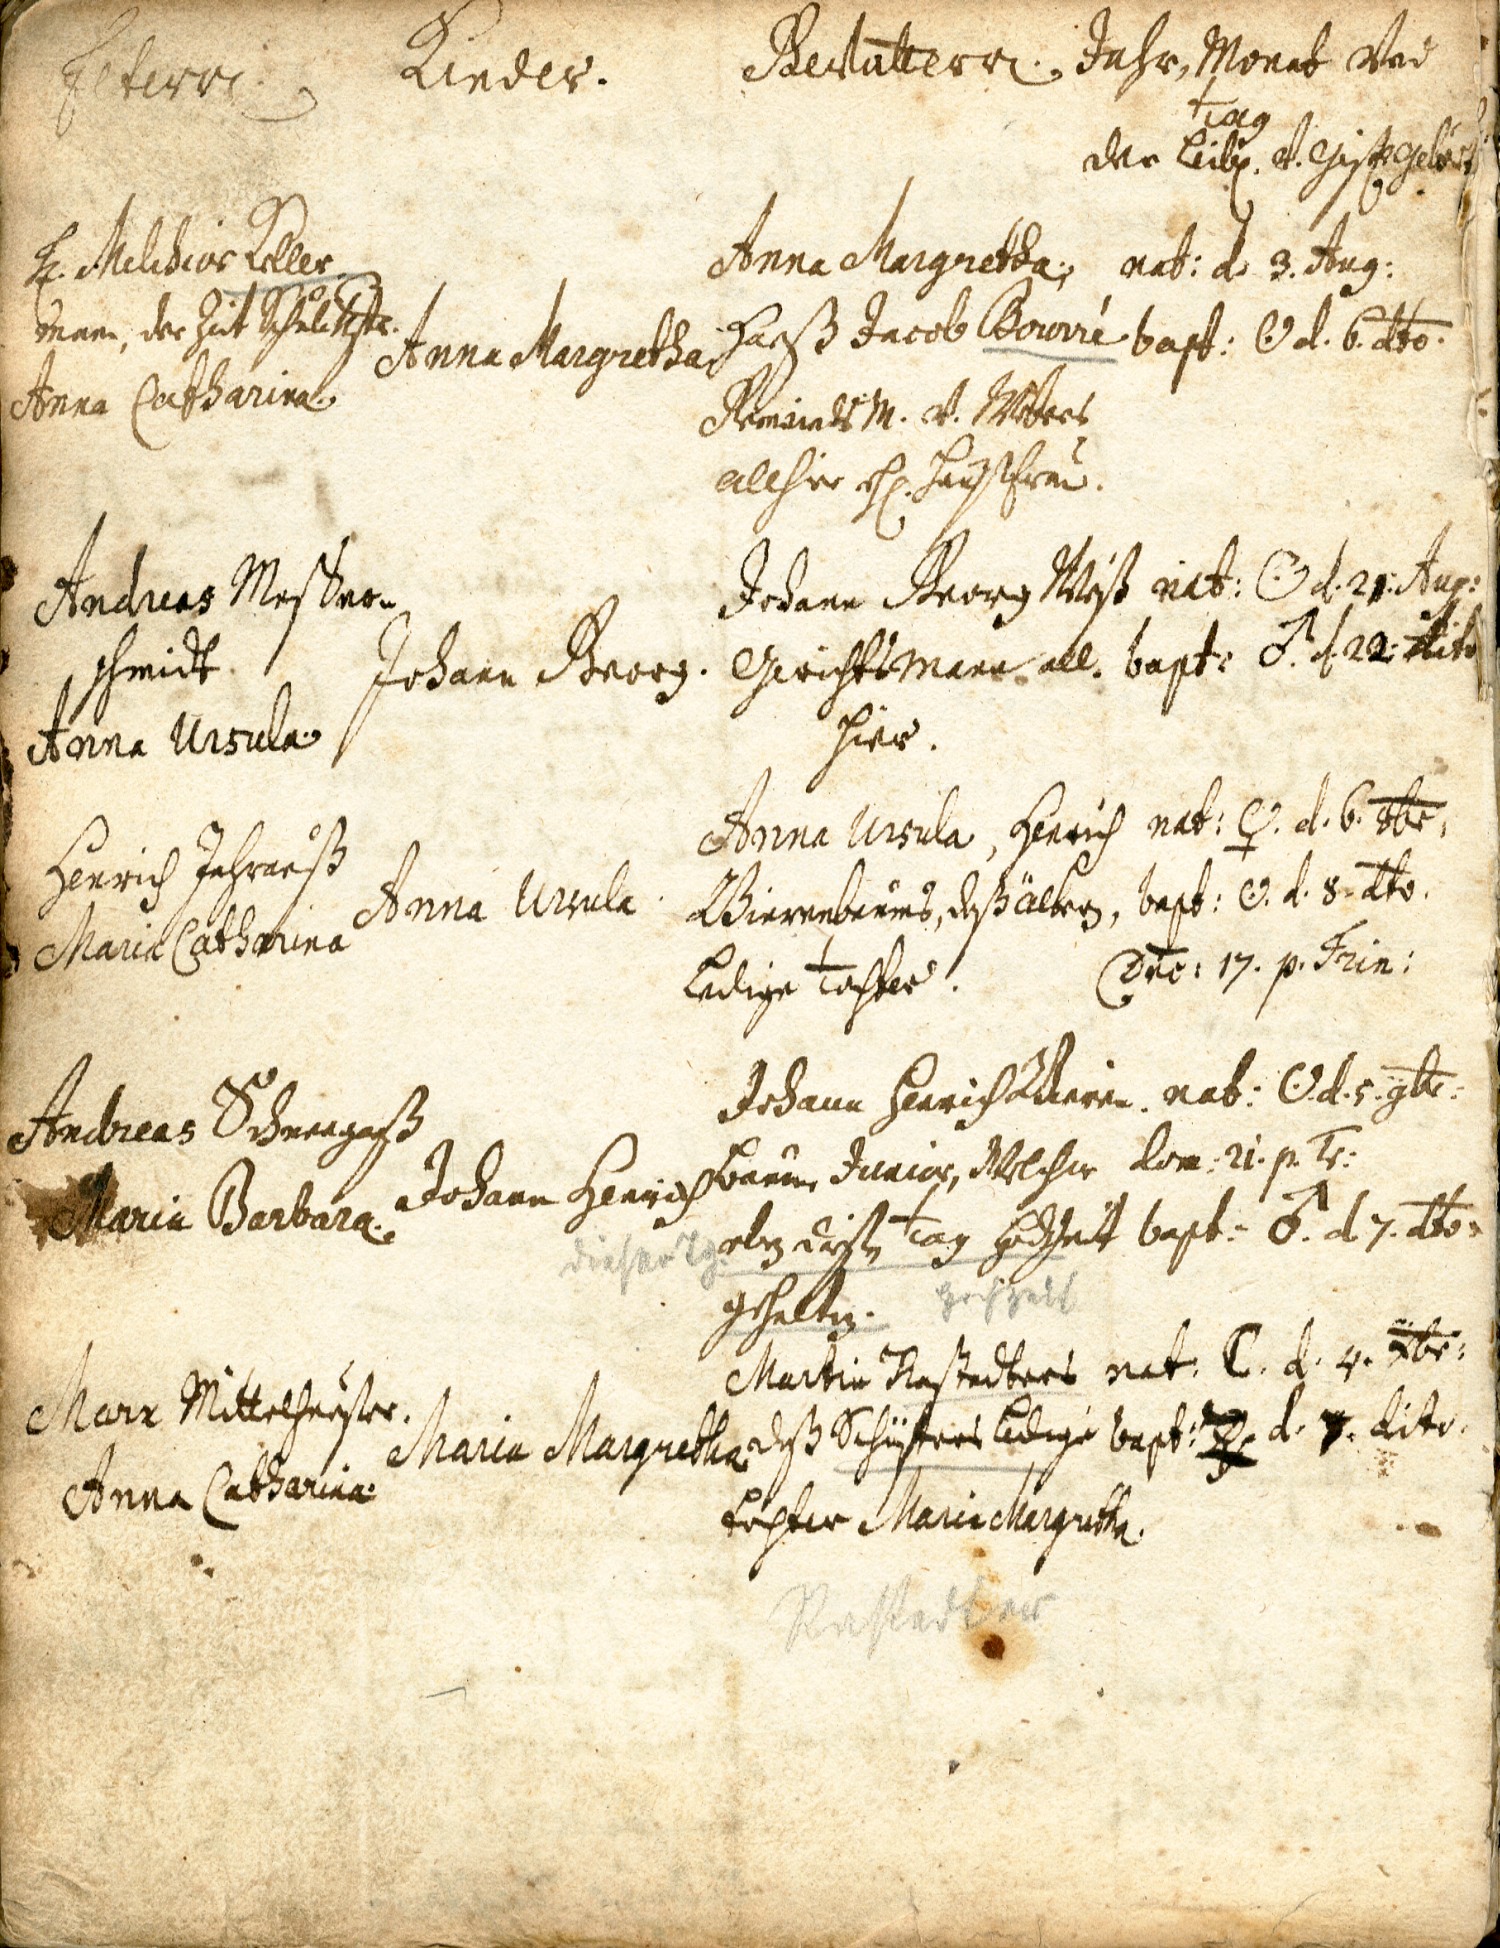 Eltern. Kinder. Gevattern. Jahr, Monat Vnd
Tag
der Leibl. v. Geistl. Geburt
H. Melchior Keller
mann, der Zeit Schultheß.
Anna Catharina
Anna Margretha
Anna Margretha,
Hanß Jacob Bowrié
M. v. Webers
allhier Haußfrau.
nat: d. 3. Aug:
bapt: ☉ d. 6. dto.
Andreas Messer-
schmidt
Anna Ursula
Johann Georg.
Johann Georg Weiß
Gerichtsmann all-
hier.
nat: ☉ d. 21. Aug:
bapt: ♂ d. 22. dito
Henrich Jahrauß
Maria Catharina
Anna Ursula.
Anna Ursula, Henrich
Bierenbaums, deß ältern,
Ledige Tochter.
nat: ♀. d. 6. 8br.
bapt: ☉. d. 8. dto.
Dnc: 17. p. Trin:
Andreas Schneegaß
Maria Barbara.
Johann Henrich
Johann Henrich Bieren-
baum Junior, Welcher
eben diesen Tag Hochzeit
gehalten.
nat: ☉. d. 5. 9br:
Dom: 21. p. Tr:
bapt: ♂. d. 7. dto.
dieser Tg.
Hochzeit
Marx Mittelhäußer.
Anna Catharina
Maria Margretha
Martin Rastedters
deß Schüsters Ledige
Tochter Maria Margretha.
nat: ☾. d. 4. Xbr:
bapt: d. 7. dito.
Rastedter